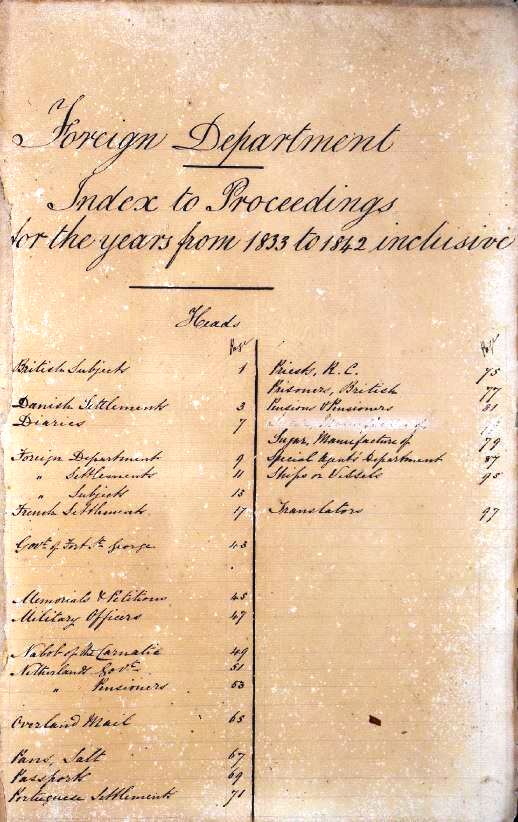 Foreign Department
Index to Proceedings
for the years from 1833 to 1842 inclusive
Heads
Page
British Subjects 1
Danish Settlements 3
Diaries 7
Foreign Department 9
" Settlements 11
" Subjects 13
French Settlements 17
Govt. of Fort St. George 43
Memorials & Petitions 45
Military Officers 47
Nabob of the Carnatic 49
Netherlands Govt. 51
" Pensioners 53
Overland Mail 65
Pans, Salt 67
Passports 69
Portuguese Settlements 71
Page
Priests, R.C. 75
Prisoners, British 77
Pensions & Pensioners 81
Sugar, Manufacture of 79
Special Agents Department 87
Ships or Vessels 95
Translators 97